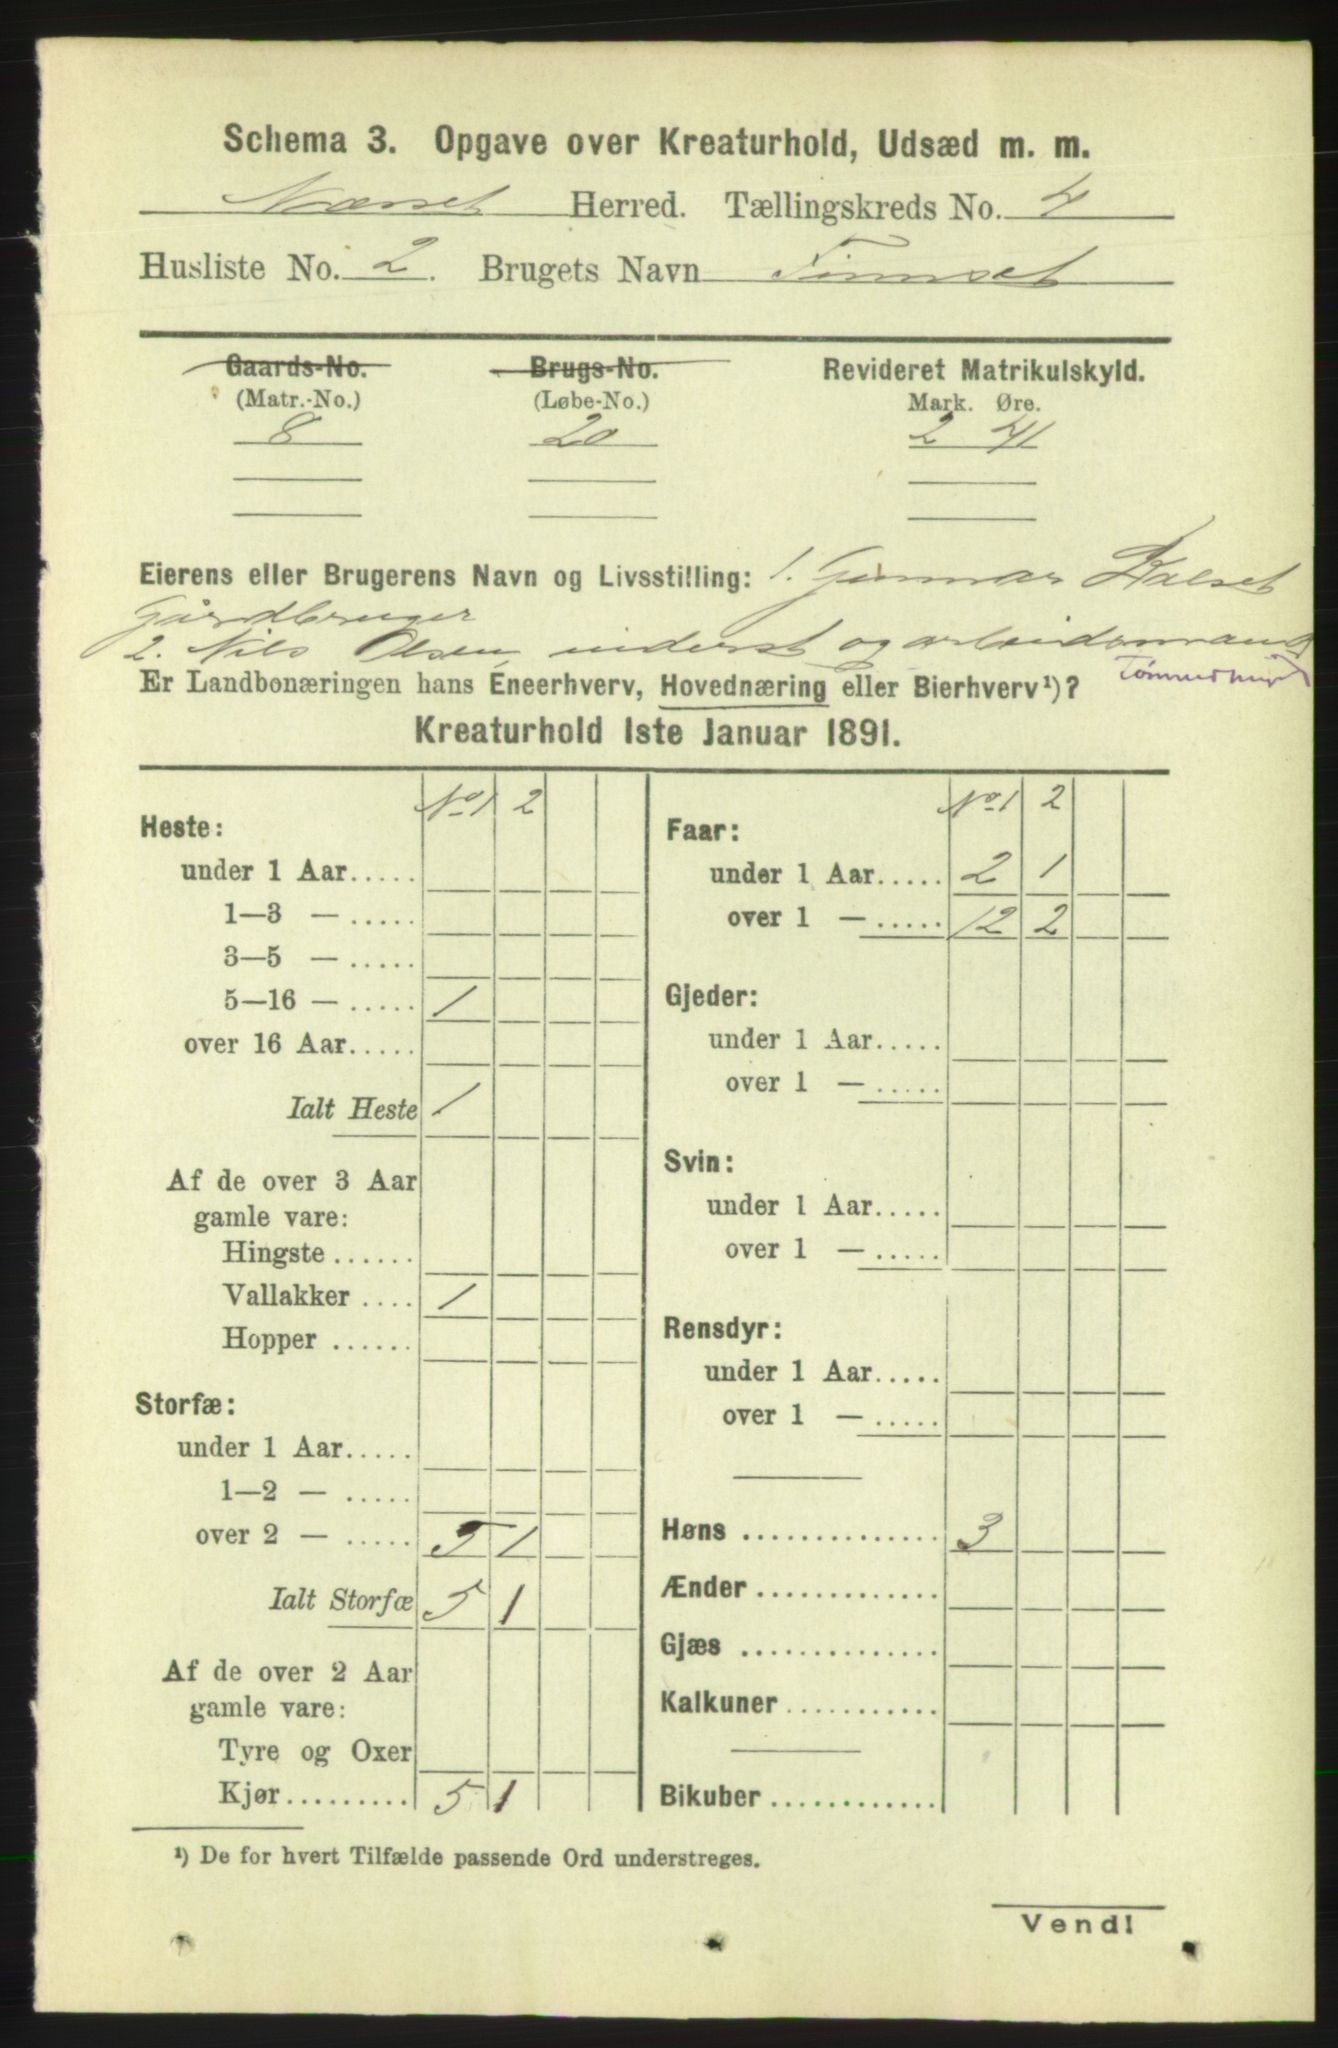 Schema 3. Opgave over Kreaturhold, Udsæd m. m.
Næsset Herred. Tællingskreds No. 4
Husliste No. 2. Brugets Navn Timset
Gaards-No. Brugs-No. Revideret Matrikulskyld.
(Matr.-No.) (Løbe-No.) Mark. Øre.
8 20 2 41
Eierens eller Brugerens Navn og Livsstilling: 1. Gunnar Kalset
Gårdbruger
2. Nils Olsen, inderst og arbeidsmand
Er Landbonæringen hans Eneerhverv, Hovednæring eller Bierhverv¹)?
Kreaturhold 1ste Januar 1891.
No 1 2
Heste:
under 1 Aar.....
1—3 — .....
3—5 — .....
5—16 — ..... 1
over 16 Aar.....
Ialt Heste 1
Af de over 3 Aar
gamle vare:
Hingste ......
Vallakker .... 1
Hopper ......
Storfæ:
under 1 Aar.....
1—2 — .....
over 2 — ..... 5 1
Ialt Storfæ 5 1
Af de over 2 Aar
gamle vare:
Tyre og Oxer
Kjør......... 5 1
No 1 2
Faar:
under 1 Aar..... 2 1
over 1 — ..... 12 2
Gjeder:
under 1 Aar.....
over 1 — .....
Svin:
under 1 Aar.....
over 1 — .....
Rensdyr:
under 1 Aar.....
over 1 — .....
Høns .............. 3
Ænder .............
Gjæs ..............
Kalkuner ...........
Bikuber ............
¹) De for hvert Tilfælde passende Ord understreges.
Vend!